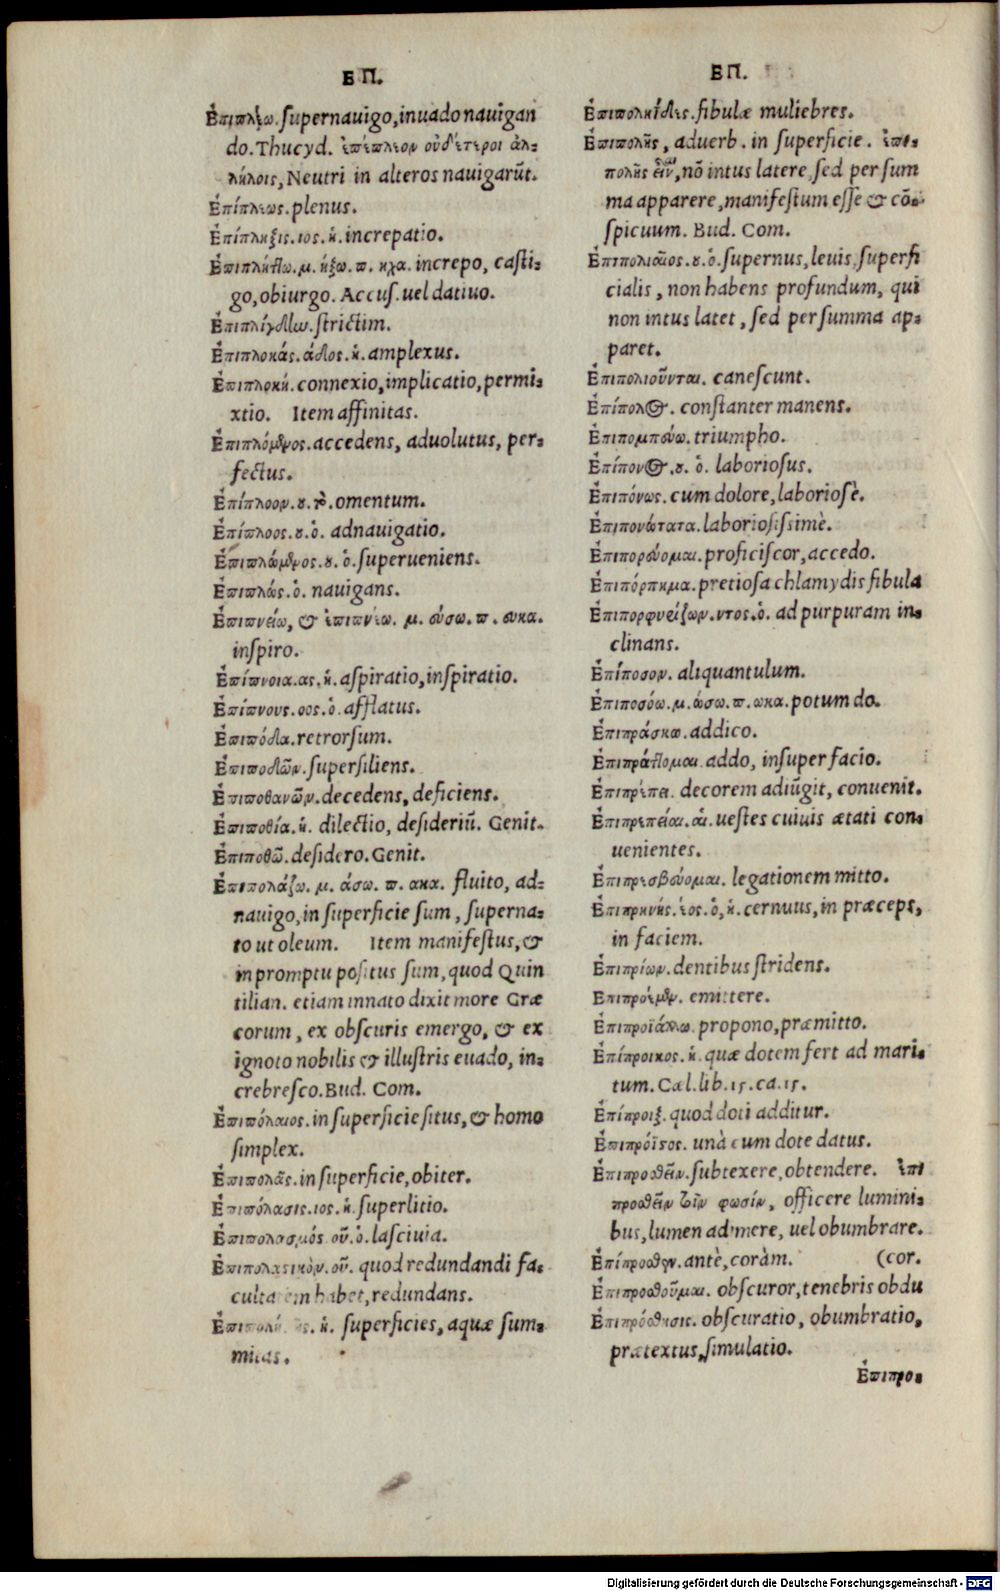 ΕΠ.
Ἐπιπλέω. supernauigo, inuado nauigan
do. Thucyd. ἐπέπλεον οὐδέτεροι ἀλ-
λήλοις, Neutri in alteros nauigarūt.
Ἐπίπλεως. plenus.
Ἐπίπληξις. ιος. ἡ. increpatio.
Ἐπιπλήττω. μ. ήξω. π. ηχα. increpo, casti-
go, obiurgo. Accus. uel datiuo.
Ἐπιπλίγδην. strictim.
Ἐπιπλοκάς. άδος. ἡ. amplexus.
Ἐπιπλοκή. connexio, implicatio, permi-
xtio. Item affinitas.
Ἐπιπλόμενος. accedens, aduolutus, per-
fectus.
Ἐπίπλοον. ου. τὸ. omentum.
Ἐπίπλοος. ου. ὁ. adnauigatio.
Ἐπιπλώμενος. ου. ὁ. superueniens.
Ἐπιπλώς. ὁ. nauigans.
Ἐπιπνείω, & ἐπιπνέω. μ. εύσω. π. ευκα.
inspiro.
Ἐπίπνοια. ας. ἡ. aspiratio, inspiratio.
Ἐπίπνους. οος. ὁ. afflatus.
Ἐπιπόδια. retrorsum.
Ἐπιποδιῶν. supersiliens.
Ἐπιποθανῶν. decedens, deficiens.
Ἐπιποθία. ἡ. dilectio, desideriū. Genit.
Ἐπιποθῶ. desidero. Genit.
Ἐπιπολάζω. μ. άσω. π. ακα. fluito, ad-
nauigo, in superficie sum, superna-
to ut oleum. Item manifestus, &
in promptu positus sum, quod Quin
tilian. etiam innato dixit more Græ
corum, ex obscuris emergo, & ex
ignoto nobilis & illustris euado, in-
crebresco. Bud. Com.
Ἐπιπόλαιος. in superficie situs, & homo
simplex.
Ἐπιπολᾶς. in superficie, obiter.
Ἐπιπόλασις. ιος. ἡ. superlitio.
Ἐπιπολασμός. οῦ. ὁ. lasciuia.
Ἐπιπολαστικὸν. οῦ. quod redundandi fa-
cultatem habet, redundans.
Ἐπιπολή. ῆς. ἡ. superficies, aquæ sum-
mitas.
ΕΠ.
Ἐπιπολητίδες. fibulæ muliebres.
Ἐπιπολῆς, aduerb. in superficie. ἐπι-
πολῆς εἶναι, nō intus latere, sed per sum
ma apparere, manifestum esse & cō-
spicuum. Bud. Com.
Ἐπιπολιαῖος. ου. ὁ. supernus, leuis, superfi
cialis, non habens profundum, qui
non intus latet, sed per summa ap-
paret.
Ἐπιπολιοῦνται. canescunt.
Ἐπίπολος. constanter manens.
Ἐπιπομπεύω. triumpho.
Ἐπίπονος. ου. ὁ. laboriosus.
Ἐπιπόνως. cum dolore, laboriosè.
Ἐπιπονώτατα. laboriosissimè.
Ἐπιπορεύομαι. proficiscor, accedo.
Ἐπιπόρπημα. pretiosa chlamydis fibula
Ἐπιπορφυρίζων. ντος. ὁ. ad purpuram in-
clinans.
Ἐπίποσον. aliquantulum.
Ἐπιποσόω. μ. ώσω. π. ωκα. potum do.
Ἐπιπράσκω. addico.
Ἐπιπράττομαι. addo, insuper facio.
Ἐπιπρέπει. decorem adiūgit, conuenit.
Ἐπιπρεπεῖαι. αἱ. uestes cuiuis ætati con-
uenientes.
Ἐπιπρεσβεύομαι. legationem mitto.
Ἐπιπρηνής. έος. ὁ, ἡ. cernuus, in præceps,
in faciem.
Ἐπιπρίων. dentibus stridens.
Ἐπιπροέμεν. emittere.
Ἐπιπροϊάλλω. propono, præmitto.
Ἐπίπροικος. ἡ. quæ dotem fert ad mari-
tum. Cæl. lib. 15. ca. 15.
Ἐπίπροιξ. quod doti additur.
Ἐπιπρόϊτος. unà cum dote datus.
Ἐπιπροσθεῖν. subtexere, obtendere. ἐπι
προσθεῖν τοῖν φωσίν, officere lumini-
bus, lumen adimere, uel obumbrare.
Ἐπίπροσθεν. antè, coràm. (cor.
Ἐπιπροσθοῦμαι. obscuror, tenebris obdu
Ἐπιπρόσθησις. obscuratio, obumbratio,
prætextus, simulatio.
Ἐπιπρο-
Digitalisierung gefördert durch die Deutsche Forschungsgemeinschaft - DFG